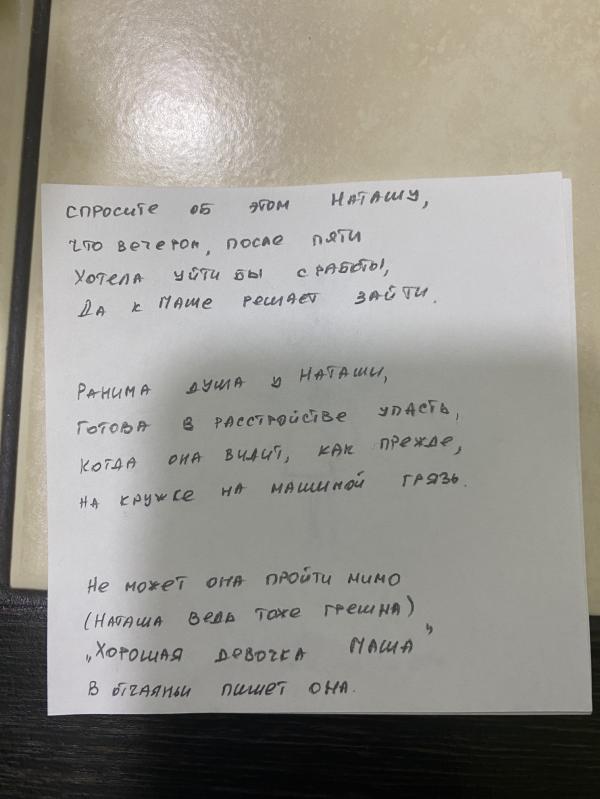 Спросите об этом Наташу,
что вечером, после пяти
Хотела уйти бы с работы,
Да к Маше решает зайти.
Ранима душа у Наташи,
Готова в расстройстве упасть,
Когда она видит, как прежде,
На кружке на машиной грязь.
Не может она пройти мимо
(Наташа ведь тоже грешна)
„Хорошая девочка Маша"
В отчаяньи пишет она.